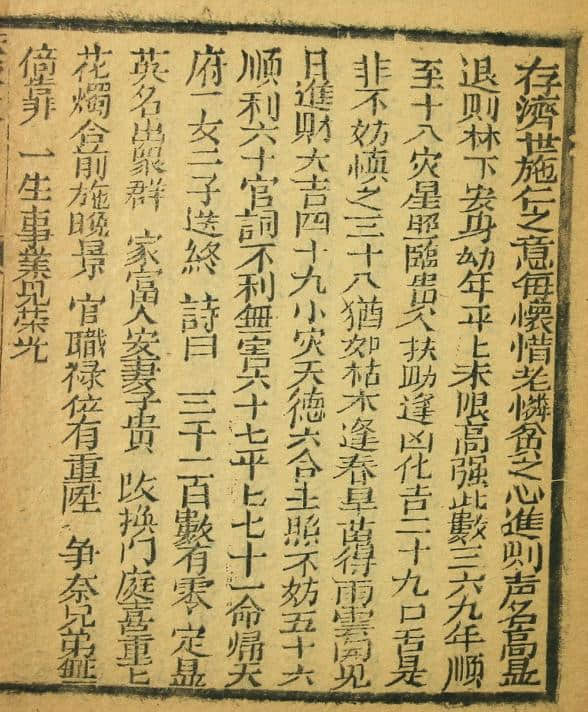 存濟世施仁之意每懷惜老憐貧之心進則声名高显
退則林下安身幼年平上末限高强此數三六九年順
至十八灾星照臨貴人扶助逢凶化吉二十九口舌是
非不妨慎之三十八猶如枯木逢春旱苗得雨雲開見
日進財大吉四十九小灾天德六合主照不妨五十六
順利六十官詞不利無害六十七平上七十一命歸天
府一女二子送終 詩曰 三千二百數有零 定显
英名出衆群 家富人安妻子貴 改換門庭喜重上
花燭台前施晚景 官職禄位有重陞 争奈兄弟無
倚靠 一生事業見荣光